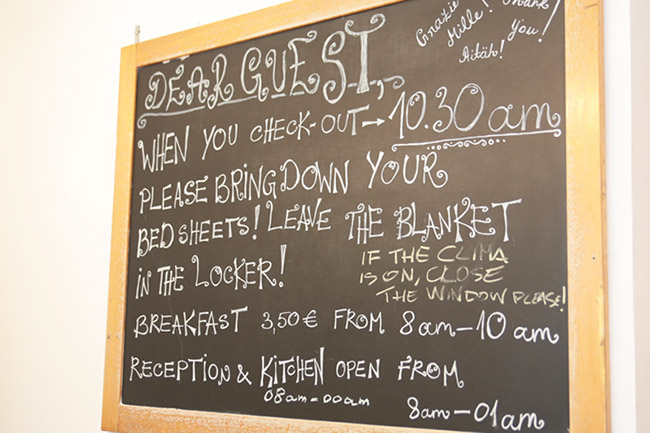 Grazie Mille!
Thank You!
Aitäh!
DEAR GUEST,
WHEN YOU CHECK-OUT → 10.30 am
PLEASE BRING DOWN YOUR
BED SHEETS! LEAVE THE BLANKET
IN THE LOCKER!
IF THE CLIMA
IS ON, CLOSE
THE WINDOW PLEASE!
BREAKFAST 3,50 € FROM 8 am – 10 am
RECEPTION & KITCHEN OPEN FROM
08 am – 00 am
8 am – 01 am